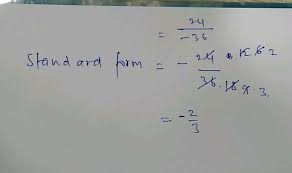 = 24/-36
Standard form = - 24/36 12 6 2 / 18 9 3
= -2/3